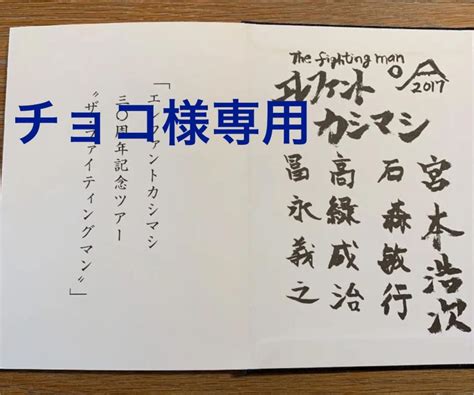 チョコ様専用
The fighting man
2017
エレファント
カシマシ
宮本浩次
石森敏行
高緑成治
冨永義之
「エレファントカシマシ
三〇周年記念ツアー
〝ザ・ファイティングマン〟」